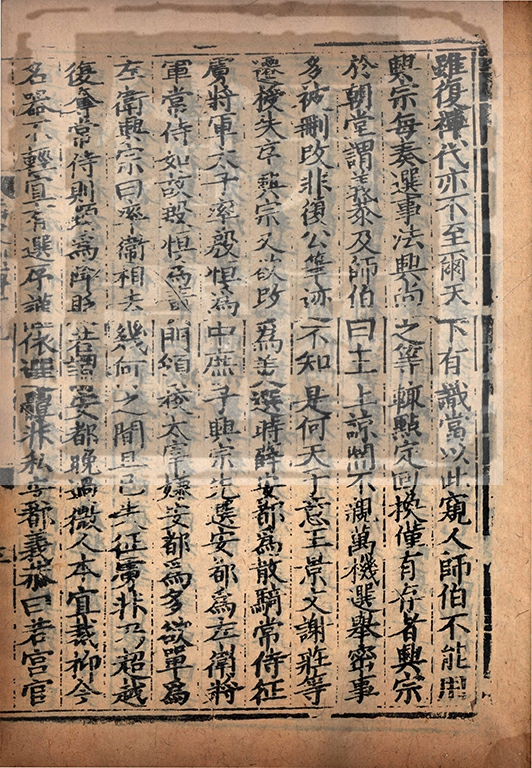 雖復禪代亦不至爾天下有識當以此窺人師伯不能用
興宗每奏選事法興尚之等輒點定回換僅有存者興宗
於朝堂謂義恭及師伯曰主上諒闇不親萬機選舉密事
多被刪改非復公筆迹不知是何天子意王景文謝莊等
遷授失序興宗又欲改爲美選時薛安都爲散騎常侍征
虜將軍太子率殷恒爲中庶子興宗先選安都爲左衛將
軍常侍如故殷恒爲黃門領校太宰嫌安都爲多欲單爲
左衛興宗曰率衛相去幾何之間且已失征虜非乃超越
復奪常侍則頓爲降貶若謂安都晚過微人本宜裁抑今
名器不輕宜有選序謹依選體非私安都義恭曰若宮官